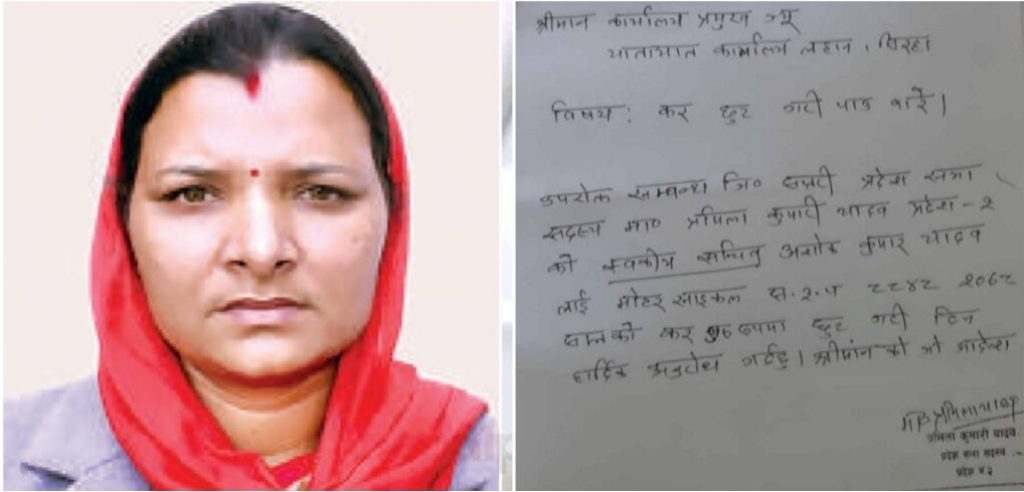 श्रीमान कार्यालय प्रमुख ज्यू
यातायात कार्यालय लहान, सिरहा
विषय: कर छुट गरी पाउ बारे।
उपरोक्त सम्बन्ध प्रदेश सभा
सदस्य मा० प्रमिला कुमारी यादव प्रदेश-२
को स्वकीय सचिव अशोक कुमार यादव
लाई मोटरसाइकल स.२.प ८८४८ २०६८
सालको कर छुट गरी दिन
हार्दिक अनुरोध गर्दछु। श्रीमानको जो आदेश
MP
प्रमिला कुमारी यादव
प्रदेश सभा सदस्य
प्रदेश नं २